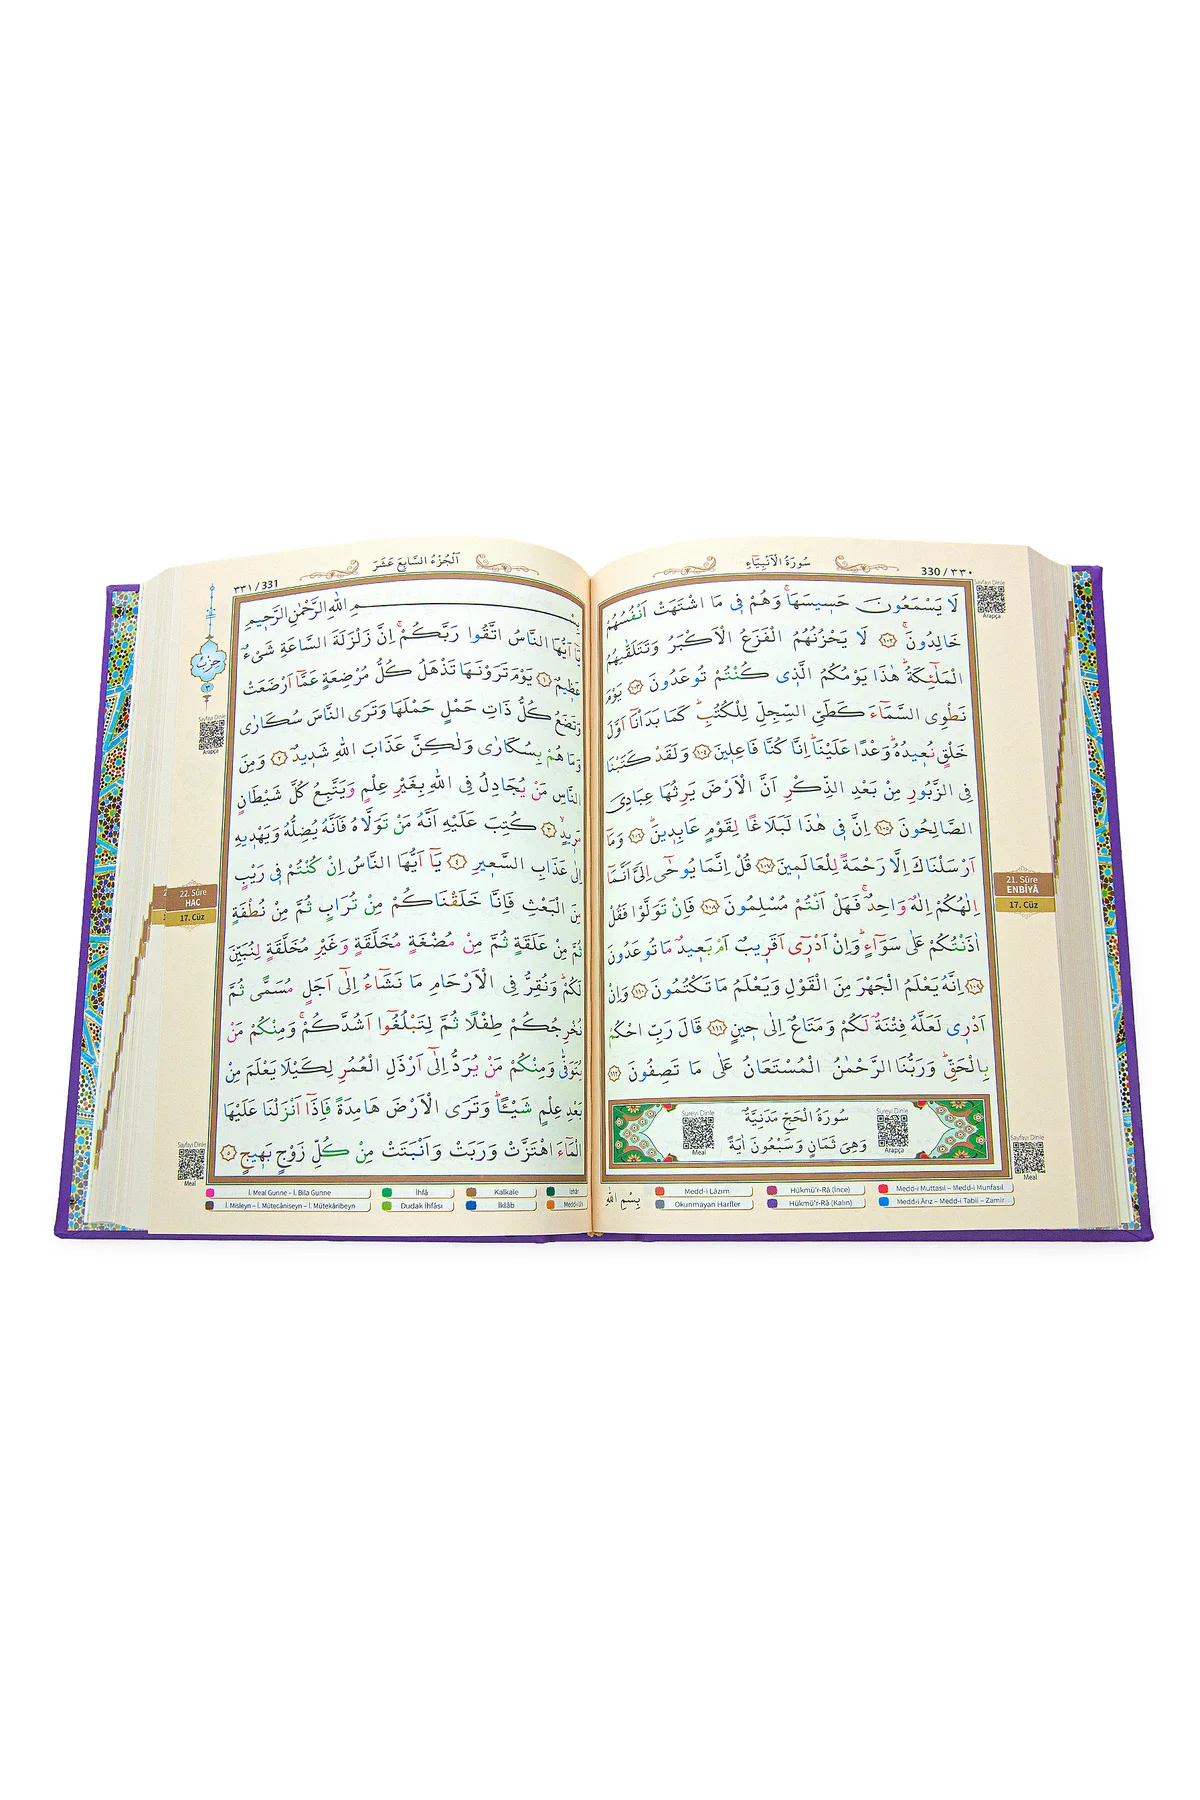 سُورَةُ الْاَنْبِيَٓاءِ
330 / ٣٣٠
لَا يَسْمَعُونَ حَسٖيسَهَاۚ وَهُمْ فٖى مَا اشْتَهَتْ اَنْفُسُهُمْ
خَالِدُونَۚ ﴿١٠٢﴾ لَا يَحْزُنُهُمُ الْفَزَعُ الْاَكْبَرُ وَتَتَلَقّٰيهُمُ
الْمَلٰٓئِكَةُؕ هٰذَا يَوْمُكُمُ الَّذٖى كُنْتُمْ تُوعَدُونَ ﴿١٠٣﴾ يَوْمَ
نَطْوِى السَّمَٓاءَ كَطَىِّ السِّجِلِّ لِلْكُتُبِؕ كَمَا بَدَاْنَٓا اَوَّلَ
خَلْقٍ نُعٖيدُهُؕ وَعْدًا عَلَيْنَاؕ اِنَّا كُنَّا فَاعِلٖينَ ﴿١٠٤﴾ وَلَقَدْ كَتَبْنَا
فِى الزَّبُورِ مِنْ بَعْدِ الذِّكْرِ اَنَّ الْاَرْضَ يَرِثُهَا عِبَادِىَ
الصَّالِحُونَ ﴿١٠٥﴾ اِنَّ فٖى هٰذَا لَبَلَاغًا لِقَوْمٍ عَابِدٖينَؕ ﴿١٠٦﴾ وَمَٓا
اَرْسَلْنَاكَ اِلَّا رَحْمَةً لِلْعَالَمٖينَ ﴿١٠٧﴾ قُلْ اِنَّمَا يُوحٰٓى اِلَىَّ اَنَّمَٓا
اِلٰهُكُمْ اِلٰهٌ وَاحِدٌۚ فَهَلْ اَنْتُمْ مُسْلِمُونَ ﴿١٠٨﴾ فَاِنْ تَوَلَّوْا فَقُلْ
اٰذَنْتُكُمْ عَلٰى سَوَٓاءٍؕ وَاِنْ اَدْرٖٓى اَقَرٖيبٌ اَمْ بَعٖيدٌ مَا تُوعَدُونَ
﴿١٠٩﴾ اِنَّهُ يَعْلَمُ الْجَهْرَ مِنَ الْقَوْلِ وَيَعْلَمُ مَا تَكْتُمُونَ ﴿١١٠﴾ وَاِنْ
اَدْرٖى لَعَلَّهُ فِتْنَةٌ لَكُمْ وَمَتَاعٌ اِلٰى حٖينٍ ﴿١١١﴾ قَالَ رَبِّ احْكُمْ
بِالْحَقِّؕ وَرَبُّنَا الرَّحْمٰنُ الْمُسْتَعَانُ عَلٰى مَا تَصِفُونَ ﴿١١٢﴾
سُورَةُ الْحَجِّ مَدَنِيَّةٌ
وَهِىَ ثَمَانٍ وَسَبْعُونَ اٰيَةً
Sureyi Dinle
Meal
Sureyi Dinle
Arapça
Sayfayı Dinle
Arapça
21. Sûre
ENBİYÂ
17. Cüz
Sayfayı Dinle
Meal
بِسْمِ اللّٰهِ
Medd-i Lâzım
Hükmü'r-Râ (İnce)
Medd-i Muttasıl – Medd-i Munfasıl
Okunmayan Harfler
Hükmü'r-Râ (Kalın)
Medd-i Ârız – Medd-i Tabii – Zamir
اَلْجُزْءُ السَّابِعَ عَشَرَ
٣٣١ / 331
بِسْمِ اللّٰهِ الرَّحْمٰنِ الرَّحٖيمِ
يَٓا اَيُّهَا النَّاسُ اتَّقُوا رَبَّكُمْۚ اِنَّ زَلْزَلَةَ السَّاعَةِ شَىْءٌ
عَظٖيمٌ ﴿١﴾ يَوْمَ تَرَوْنَهَا تَذْهَلُ كُلُّ مُرْضِعَةٍ عَمَّٓا اَرْضَعَتْ
وَتَضَعُ كُلُّ ذَاتِ حَمْلٍ حَمْلَهَا وَتَرَى النَّاسَ سُكَارٰى
وَمَا هُمْ بِسُكَارٰى وَلٰكِنَّ عَذَابَ اللّٰهِ شَدٖيدٌ ﴿٢﴾ وَمِنَ
النَّاسِ مَنْ يُجَادِلُ فِى اللّٰهِ بِغَيْرِ عِلْمٍ وَيَتَّبِعُ كُلَّ شَيْطَانٍ
مَرٖيدٍۙ ﴿٣﴾ كُتِبَ عَلَيْهِ اَنَّهُ مَنْ تَوَلَّاهُ فَاَنَّهُ يُضِلُّهُ وَيَهْدٖيهِ
اِلٰى عَذَابِ السَّعٖيرِ ﴿٤﴾ يَٓا اَيُّهَا النَّاسُ اِنْ كُنْتُمْ فٖى رَيْبٍ
مِنَ الْبَعْثِ فَاِنَّا خَلَقْنَاكُمْ مِنْ تُرَابٍ ثُمَّ مِنْ نُطْفَةٍ
ثُمَّ مِنْ عَلَقَةٍ ثُمَّ مِنْ مُضْغَةٍ مُخَلَّقَةٍ وَغَيْرِ مُخَلَّقَةٍ لِنُبَيِّنَ
لَكُمْؕ وَنُقِرُّ فِى الْاَرْحَامِ مَا نَشَٓاءُ اِلٰٓى اَجَلٍ مُسَمًّى ثُمَّ
نُخْرِجُكُمْ طِفْلًا ثُمَّ لِتَبْلُغُٓوا اَشُدَّكُمْۚ وَمِنْكُمْ مَنْ
يُتَوَفّٰى وَمِنْكُمْ مَنْ يُرَدُّ اِلٰٓى اَرْذَلِ الْعُمُرِ لِكَيْلَا يَعْلَمَ مِنْ
بَعْدِ عِلْمٍ شَيْـًٔاؕ وَتَرَى الْاَرْضَ هَامِدَةً فَاِذَٓا اَنْزَلْنَا عَلَيْهَا
الْمَٓاءَ اهْتَزَّتْ وَرَبَتْ وَاَنْبَتَتْ مِنْ كُلِّ زَوْجٍ بَهٖيجٍ ﴿٥﴾
حزب
٢
Sayfayı Dinle
Arapça
22. Sûre
HAC
17. Cüz
Sayfayı Dinle
Meal
İ. Meal Gunne – İ. Bila Gunne
İhfâ
Kalkale
İzhâr
İ. Misleyn – İ. Mütecâniseyn – İ. Mütekâribeyn
Dudak İhfâsı
İklâb